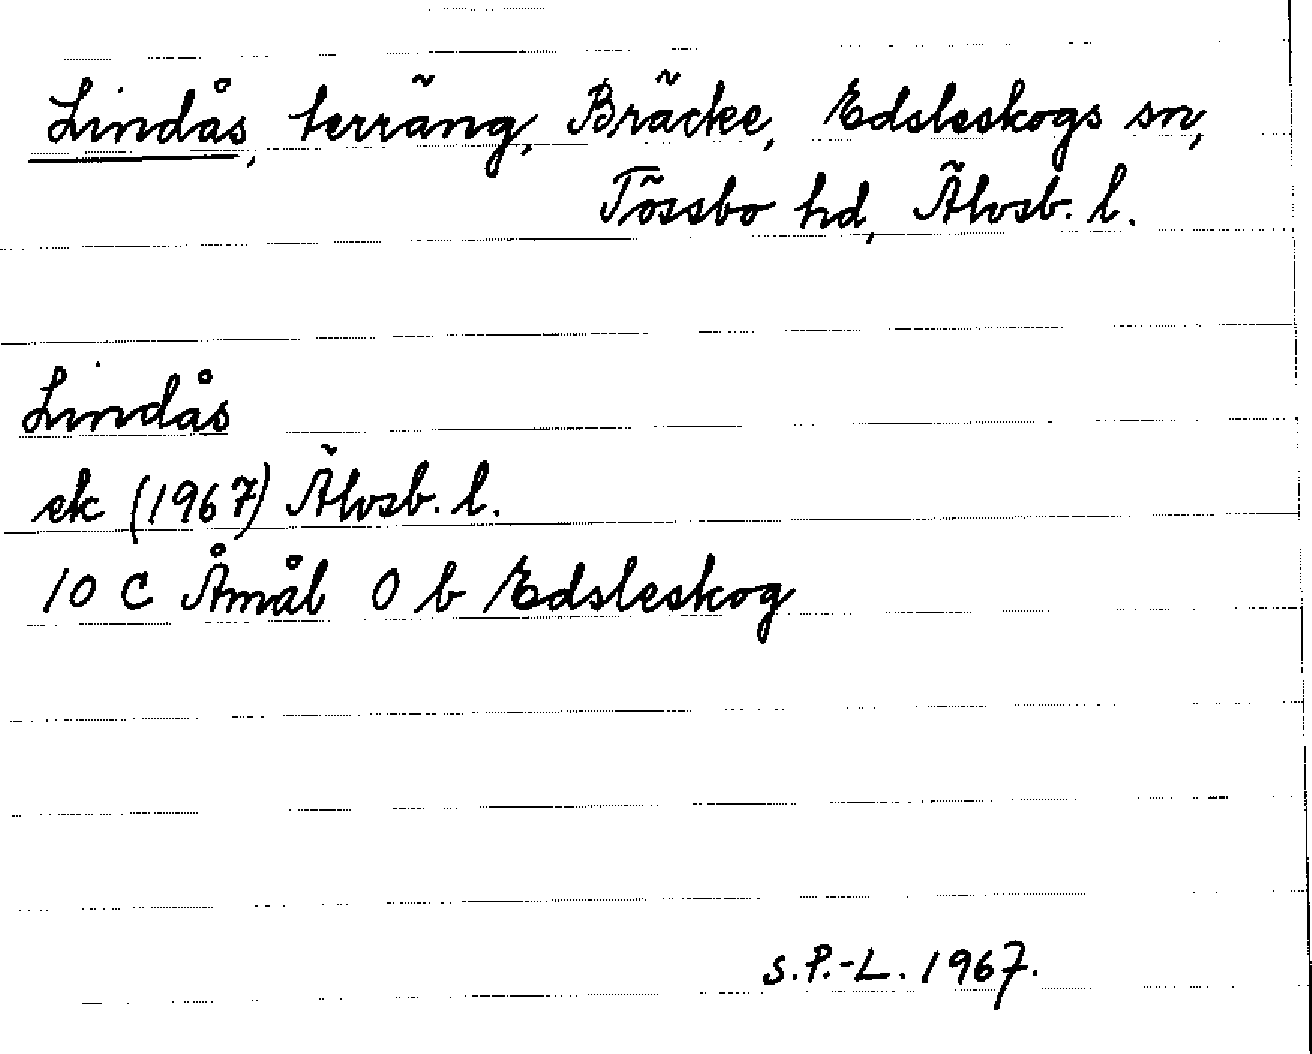 Lindås, terräng, Bräcke, Edsleskogs sn,
Tössbo hd, Älvsb. l.
Lindås
ek (1967) Älvsb. l.
10 C Åmål 0 b Edsleskog
S.P.-L. 1967.